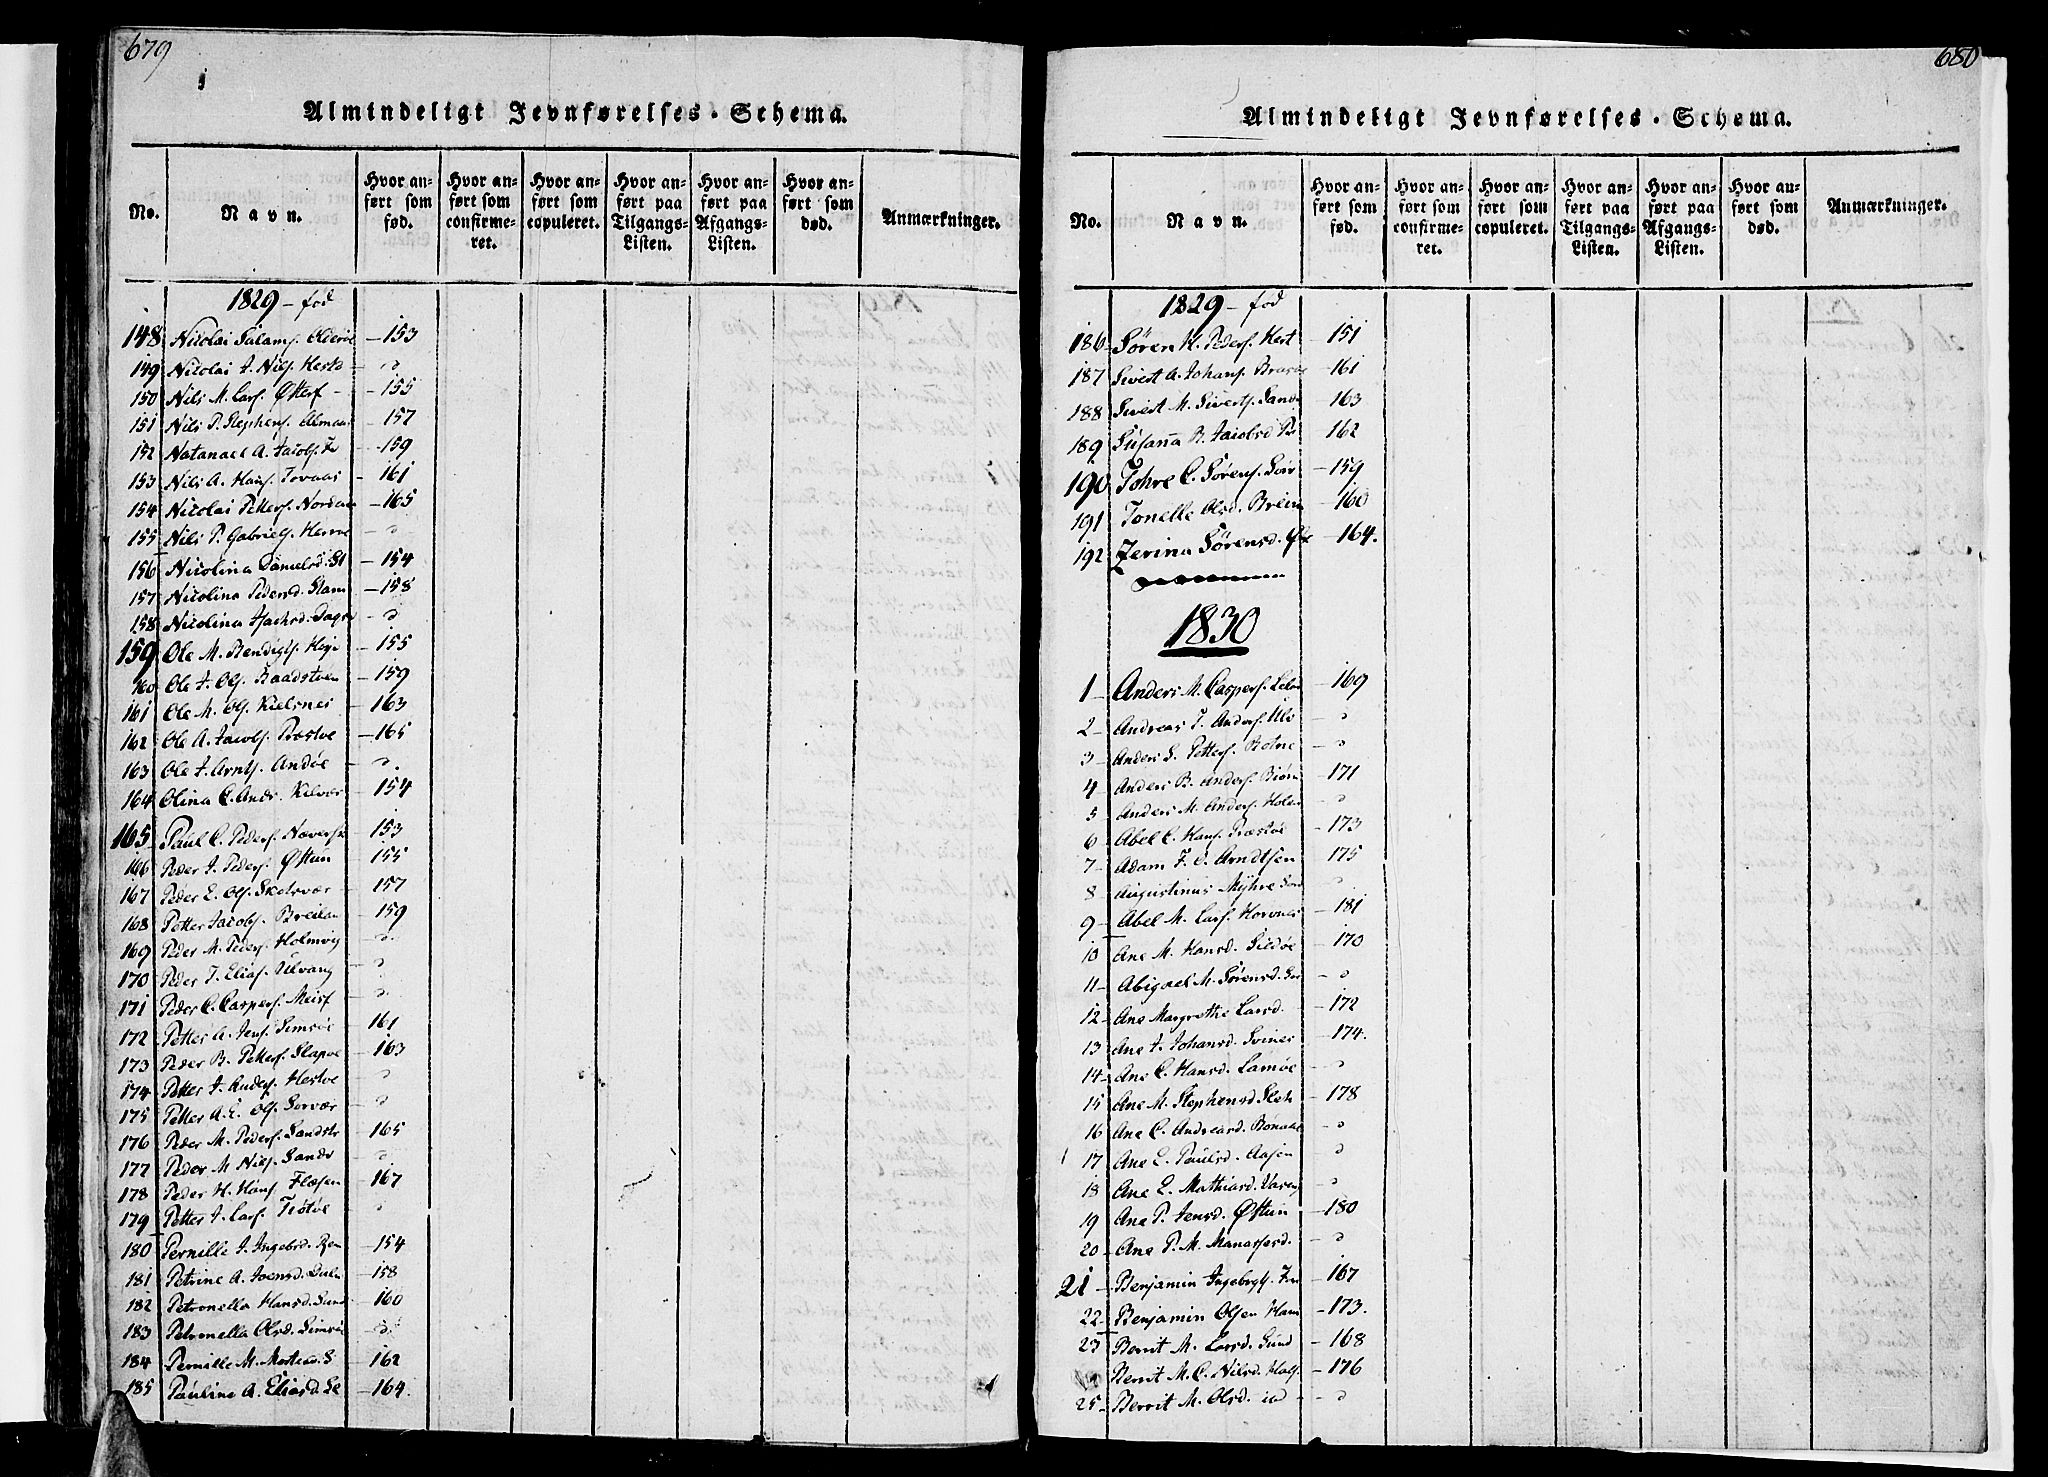 679
Almindeligt Jevnførelses-Schema.
No.
Navn.
Hvor anført som fød.
Hvor anført som confirmeret.
Hvor anført som copuleret.
Hvor anført paa Tilgangs-Listen.
Hvor anført paa Afgangs-Listen.
Hvor anført som død.
Anmærkninger.
1829 - fød
148 Nicolai — 153
149 Nicolai J. Nils. — d
150 Nils M. Lars. — 155
151 Nils P. Stephens. — 157
152 Natanael A. Jacobs. — 159
153 Nils A. Hans. — 161
154 Nicolai Petters. — 165
155 Nils P. Gabriels. — d
156 Nicolina Danielsd. — 154
157 Nicolina Pedersd. — 158
158 Nicolina — d
159 Ole M. — 155
160 Ole J. Ols. — 159
161 Ole M. Ols. Kielsnes — 163
162 Ole A. Jacobs. — 165
163 Ole J. Arnts. Andøe — d.
164 Olina C. Andr. — 154
165 Paul C. Peders. — 153
166 Peder J. Peders. Østun — 155
167 Peder E. Ols. — 157
168 Petter Jacobs. — 159
169 Peder M. Peders. Holmvig — d.
170 Peder J. Elias. Ulvang — d
171 Peder C. Caspers. — d.
172 Petter A. Jens. — 161
173 Peder B. Petters. — 163
174 Petter J. Anders. — d
175 Petter A. E. Ols. Sorvær — d
176 Peder M. Peders. Sandst — 165
177 Peder M. Nils. — d
178 Peder H. Hans. Flæsen — 167
179 Petter J. Lars. — d
180 Pernille J. Ingebrd. — 154
181 Petrine A. — 158
182 Petronella Hansd. — 160
183 Petronella Olsd. — d.
184 Pernille M. — 162
185 Paulina A. Eliasd. — 164.
680
Almindeligt Jevnførelses-Schema.
No.
Navn.
Hvor anført som fød.
Hvor anført som confirmeret.
Hvor anført som copuleret.
Hvor anført paa Tilgangs-Listen.
Hvor anført paa Afgangs-Listen.
Hvor anført som død.
Anmærkninger.
1829 - fød
186 Sören H. Peders. — 151
187 Sivert A. Johans. — 161
188 Sivert M. Siverts. — 163
189 Susanna B. Jacobsd. — 162
190 Tohre C. Sörens. — 159
191 Tonelle Olsd. — 160
192 Zerina Sörensd. — 164.
1830
1 — Anders M. Caspers. — 169
2 — Andreas J. Anders. — d
3 — Anders S. Petters. Botne — d
4 — Anders B. Anders. — 171
5 — Anders M. Anders. — d
6 — Abel C. Hans. — 173
7 — Adam J. C. Arndtsen 175
8 Augustinus Myhre d
9 — Abel M. Lars. Hornnes — 181
10 Ane M. Hansd. Sildøe — 170
11 — Abigael M. Sörensd. — d
12 — Ane Margrethe Larsd. — 172
13 Ane J. Johansd. Svines — 174.
14 — Ane C. Hansd. — d
15 Ane M. Stephensd. — 178
16 Ane C. Andreasd. — d
17 Ane E. Paulsd. Aasen — d
18 Ane E. Mathiasd. — d
19 Ane P. Jensd. Østun — 180
20 — Ane P. M. Manassesd. — d
21 — Benjamin — 167
22 — Benjamin Olsen — 173.
23 Berrit M. Larsd. Sund — 168
Berrit M. C. Nilsd. — 176
25 — Berrit M. Olsd. — d